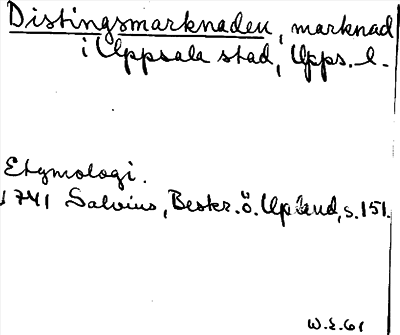 Distingsmarknaden, marknad
i Uppsala stad, Upps. l.
Etymologi.
1741 Salvius, Beskr. ö. Upland, s. 151.
W.E.61